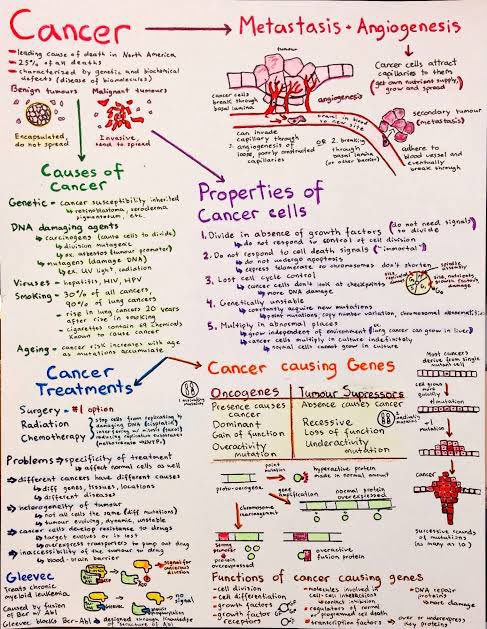 Cancer
leading cause of death in North America
25% of all deaths
characterized by genetic and biochemical
defects (disease of biomolecules)
Benign tumours
Malignant tumours
Encapsulated,
do not spread
Invasive,
tend to spread
Metastasis + Angiogenesis
tumour
cancer cells
break through
basal lamina
angiogenesis
Cancer cells attract
capillaries to them
(get own nutrients supply,
grow and spread
travel in blood
to new site
secondary tumour
(metastasis)
can invade
capillary through
1. angiogenesis of
loose, poorly constructed
capillaries
or
2. breaking
through
basal lamina
(or other barrier)
adhere to
blood vessel and
eventually
break through
Causes of
Cancer
Genetic - cancer susceptibility inherited
retinoblastoma, xeroderma
pigmentosum, etc.
DNA damaging agents
carcinogens (cause cells to divide)
division mutagenic
ex. asbestos (tumour promoter)
mutagens (damage DNA)
ex. UV light, radiation
Viruses - hepatitis, HIV, HPV
Smoking - 30% of all cancers,
90% of lung cancers
- rise in lung cancers 20 years
after rise in smoking
- cigarettes contain 69 chemicals
known to cause cancer
Ageing - cancer risk increases with age
as mutations accumulate
Properties of
Cancer cells
1. Divide in absence of growth factors (do not need signals
to divide
do not respond to control of cell division
2. Do not respond to cell death signals ("immortal")
do not undergo apoptosis
express telomerase so chromosomes don't shorten
3. Lost cell cycle control
cancer cells don't look at checkpoints
more DNA damage
spindle
assembly
size, nutrients
growth factors
DNA damage
4. Genetically unstable
constantly acquire new mutations
point mutations, copy number variation, chromosomal abnormalities
5. Multiply in abnormal places
grow independent of environment (lung cancer can grow in liver)
cancer cells multiply in culture indefinitely
normal cells cannot grow in culture
Cancer
Treatments
Surgery - #1 option
Radiation
Chemotherapy
stop cells from replicating by
damaging DNA (cisplatin)
interfering w/ mitosis (taxol)
reducing replication substrates
(methotrexate)
Problems specificity of treatment
affect normal cells as well
different cancers have different causes
diff genes, tissues, locations
different diseases
heterogeneity of tumour
not all cells the same (diff mutations)
tumour evolving, dynamic, unstable
cancer cells develop resistance to drugs
target evolves or is lost
overexpress transporters to pump out drug
inaccessibility of the tumour to drug
blood-brain barrier
Gleevec
Treats chronic
myeloid leukemia
Caused by fusion
of Bcr w/ Abl
Gleevec blocks Bcr-Abl
designed through knowledge
of structure of Abl
signal for
cancerous
division
Cancer causing Genes
Oncogenes
Tumour Supressors
Presence causes
cancer
Dominant
Gain of function
Overactivity
mutation
Absence causes cancer
Recessive
Loss of function
Underactivity
mutation
1 activating
mutation
2 inactivating
mutations
proto-oncogene
point
mutation
hyperactive protein
made in normal amount
gene
amplification
normal protein
overexpressed
chromosome
rearrangement
strong
promoter
protein
overexpressed
overactive
fusion protein
Most cancers
derive from single
mutant cell
cell grows
more
quickly
+1 mutation
+1
mutation
cancer
successive rounds of
mutations
(as many as 10)
Functions of cancer causing genes
- cell division
- cell differentiation
- growth factors
- growth factor
receptors
- molecules involved in
cell-cell interactions
- contact inhibition
- regulators of normal
programmed cell death
- transcription factors
- DNA repair
proteins
more damage
over or underexpress
key proteins